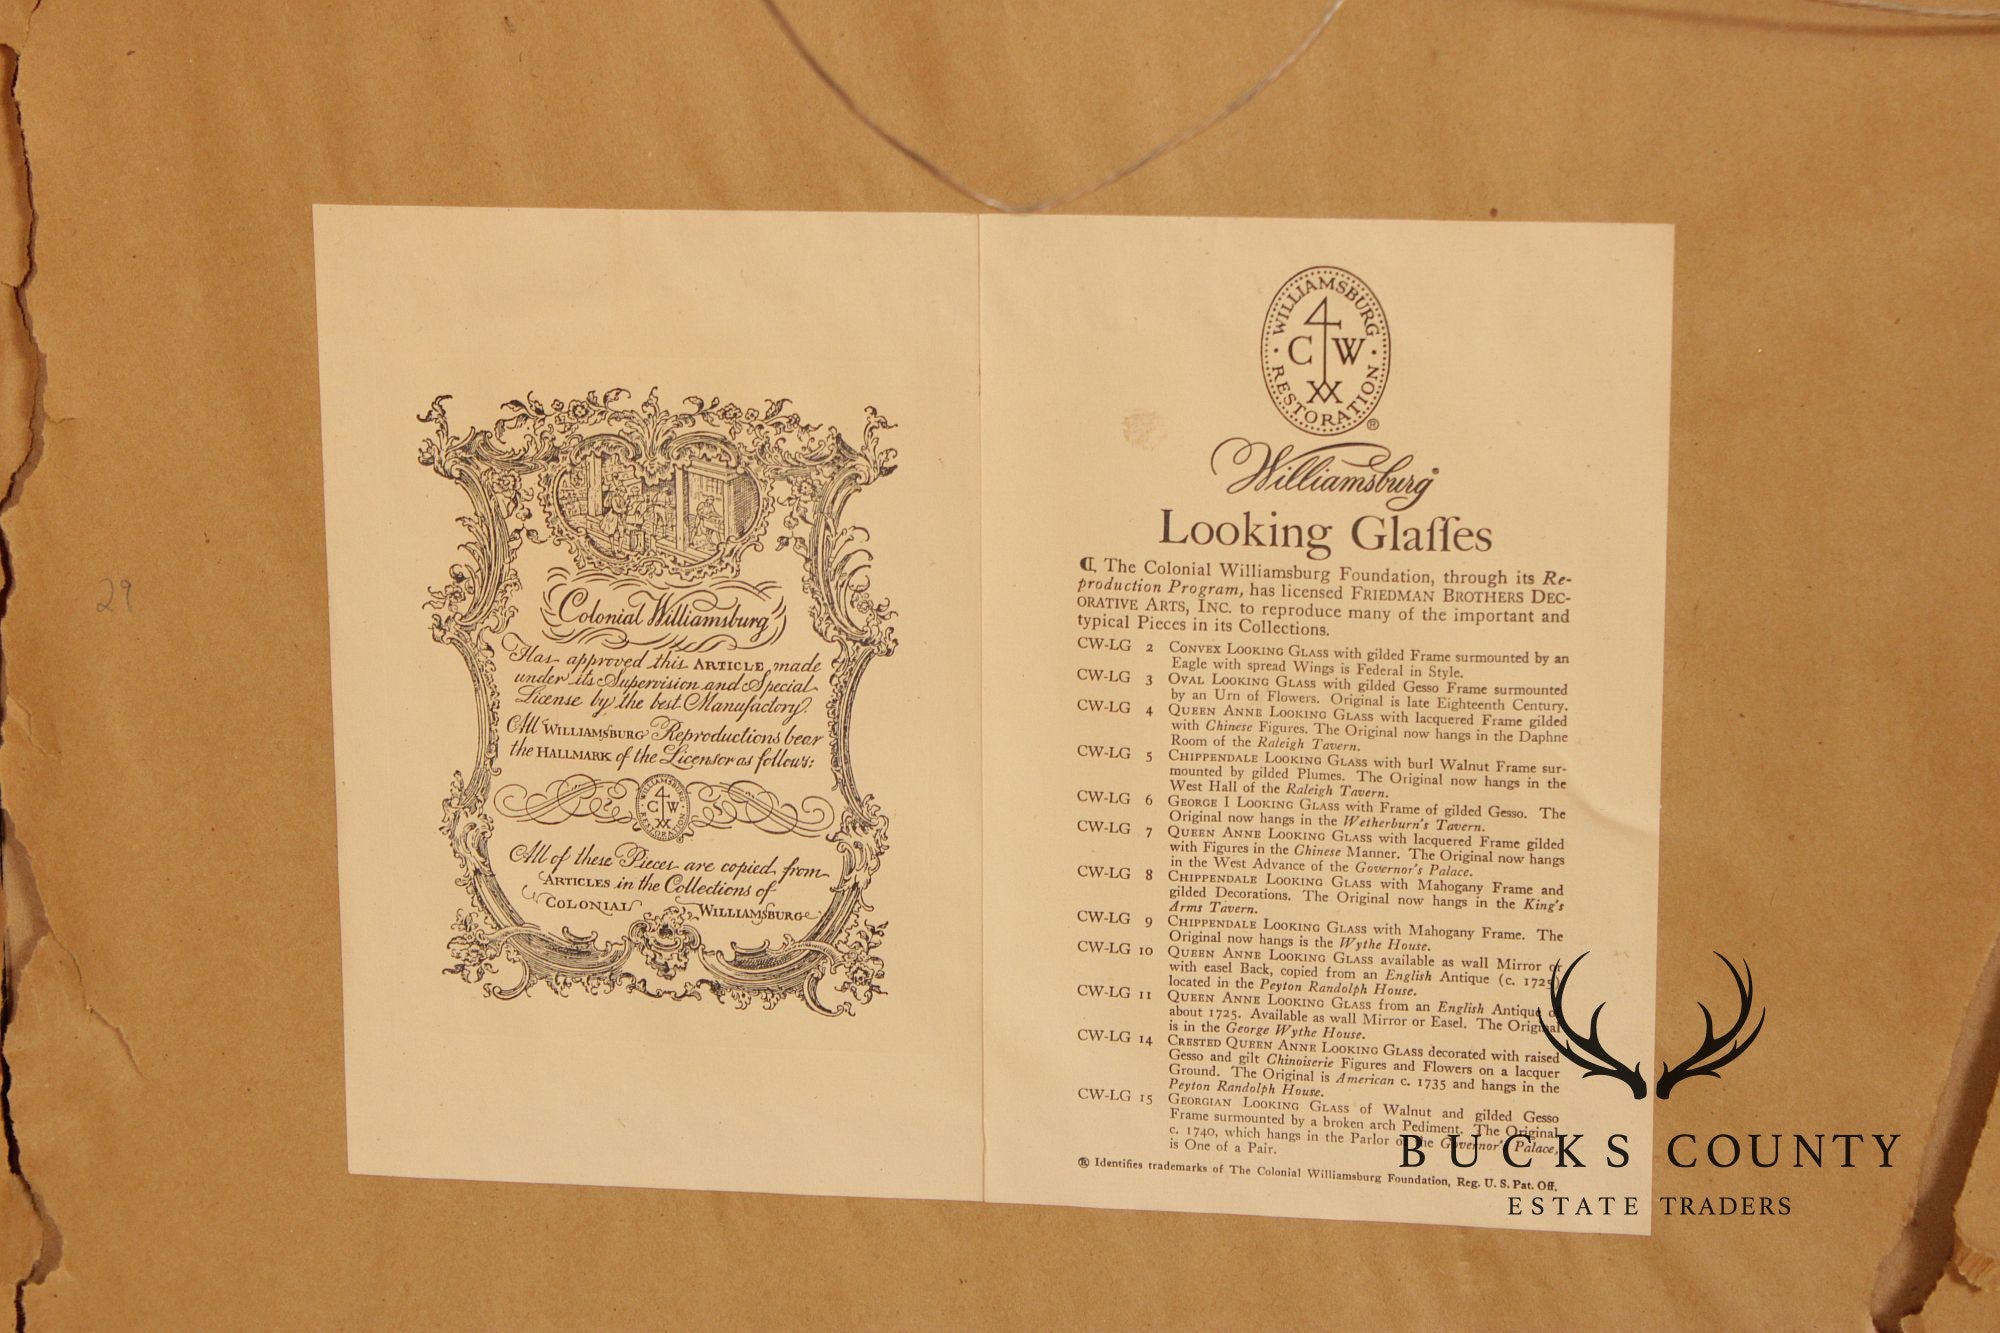 29
Colonial Williamsburg
Has approved this ARTICLE made
under its Supervision and Special
License by the best Manufactory.
All WILLIAMSBURG Reproductions bear
the HALLMARK of the Licensor as follows:
WILLIAMSBURG
C W
RESTORATION
All of these Pieces are copied from
ARTICLES in the Collections of
COLONIAL WILLIAMSBURG
WILLIAMSBURG
C W
RESTORATION
®
Williamsburg
Looking Glaſſes
The Colonial Williamsburg Foundation, through its Re-
production Program, has licensed FRIEDMAN BROTHERS DEC-
ORATIVE ARTS, INC. to reproduce many of the important and
typical Pieces in its Collections.
CW-LG 2 CONVEX LOOKING GLASS with gilded Frame surmounted by an
Eagle with spread Wings is Federal in Style.
CW-LG 3 OVAL LOOKING GLASS with gilded Gesso Frame surmounted
by an Urn of Flowers. Original is late Eighteenth Century.
CW-LG 4 QUEEN ANNE LOOKING GLASS with lacquered Frame gilded
with Chinese Figures. The Original now hangs in the Daphne
Room of the Raleigh Tavern.
CW-LG 5 CHIPPENDALE LOOKING GLASS with burl Walnut Frame sur-
mounted by gilded Plumes. The Original now hangs in the
West Hall of the Raleigh Tavern.
CW-LG 6 GEORGE I LOOKING GLASS with Frame of gilded Gesso. The
Original now hangs in the Wetherburn's Tavern.
CW-LG 7 QUEEN ANNE LOOKING GLASS with lacquered Frame gilded
with Figures in the Chinese Manner. The Original now hangs
in the West Advance of the Governor's Palace.
CW-LG 8 CHIPPENDALE LOOKING GLASS with Mahogany Frame and
gilded Decorations. The Original now hangs in the King's
Arms Tavern.
CW-LG 9 CHIPPENDALE LOOKING GLASS with Mahogany Frame. The
Original now hangs is the Wythe House.
CW-LG 10 QUEEN ANNE LOOKING GLASS available as wall Mirror or
with easel Back, copied from an English Antique (c. 1725)
located in the Peyton Randolph House.
CW-LG 11 QUEEN ANNE LOOKING GLASS from an English Antique of
about 1725. Available as wall Mirror or Easel. The Original
is in the George Wythe House.
CW-LG 14 CRESTED QUEEN ANNE LOOKING GLASS decorated with raised
Gesso and gilt Chinoiserie Figures and Flowers on a lacquer
Ground. The Original is American c. 1735 and hangs in the
Peyton Randolph House.
CW-LG 15 GEORGIAN LOOKING GLASS of Walnut and gilded Gesso
Frame surmounted by a broken arch Pediment. The Original
c. 1740, which hangs in the Parlor of the Governor's Palace,
is One of a Pair.
® Identifies trademarks of The Colonial Williamsburg Foundation, Reg. U. S. Pat. Off.
BUCKS COUNTY
ESTATE TRADERS